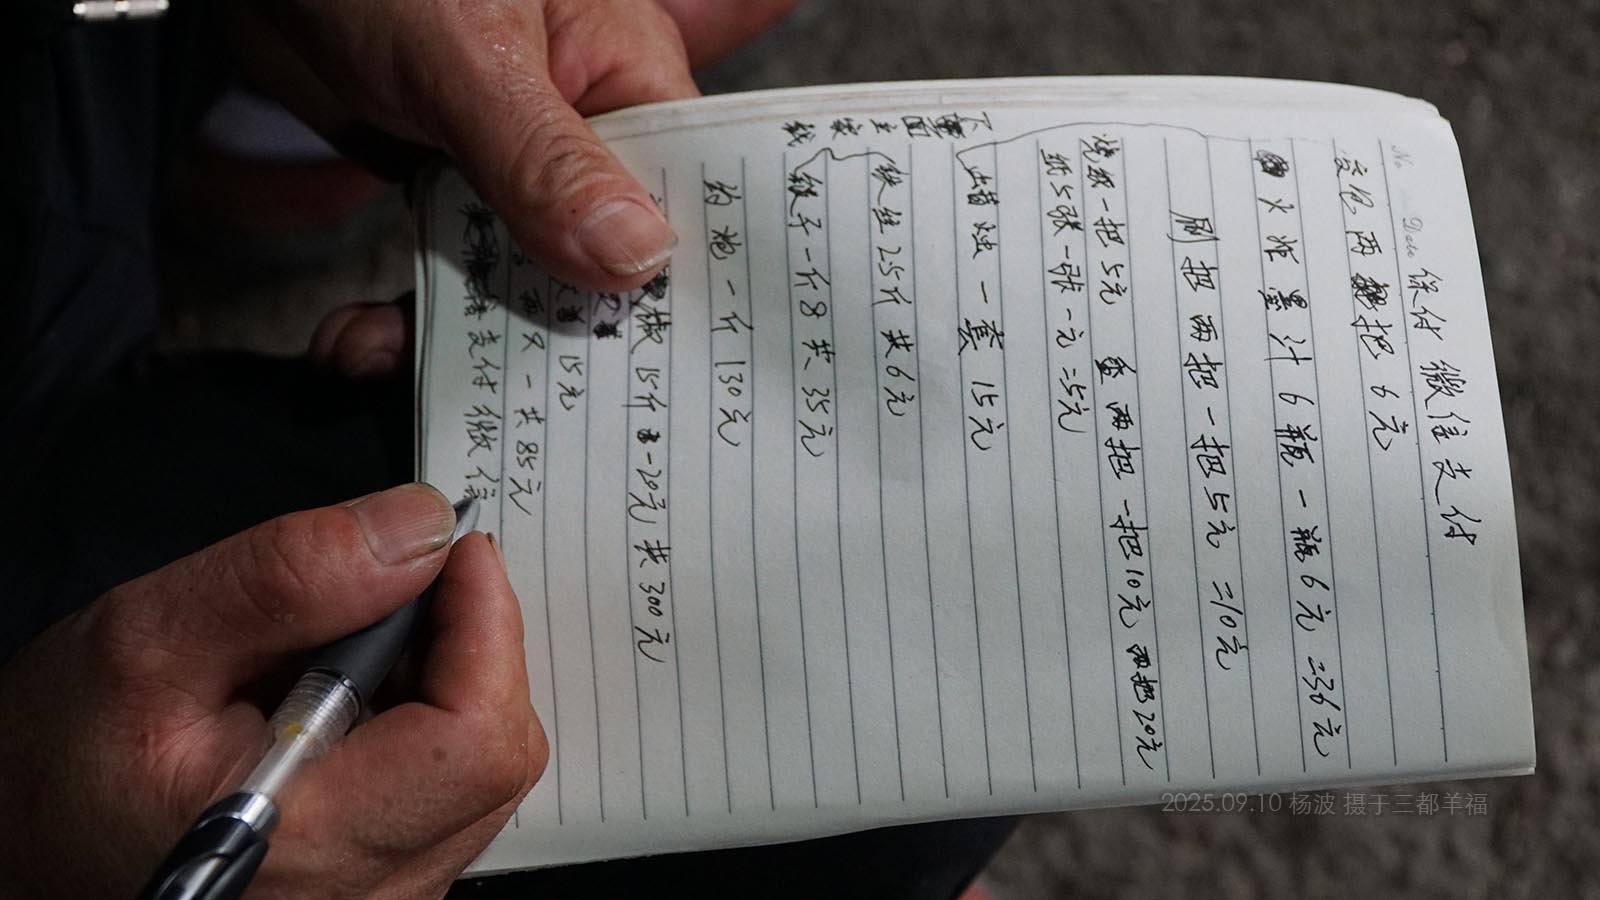 No
Date
保付 微信支付
6元
火炸墨汁6瓶一瓶6元=36元
刷把两把一把5元=10元
烧纸一把5元 香两把一把10元 两把20元
纸5张一张一元=5元
蜡烛一套 15元
下面主家钱
铁丝2.5斤 共6元
一斤8共35元
炮一斤130元
椒15斤 一20元共300元
15元
两只一共85元
支付微信
2025.09.10 杨波 摄于三都羊福